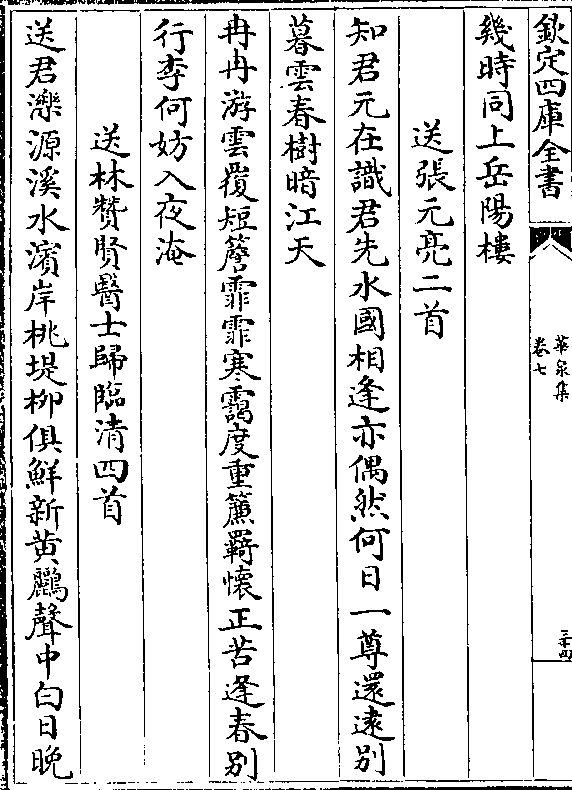 欽定四庫全書
華泉集
卷七
三十四
幾時同上岳陽樓
送張元亮二首
知君元在識君先水國相逢亦偶然何日一尊還遠別
暮雲春樹暗江天
冉冉游雲覆短簷霏霏寒靄度重簾羇懷正苦逢春別
行李何妨入夜淹
送林贊賢醫士歸臨清四首
送君濼源溪水濱岸桃堤柳俱鮮新黄鸝聲中白日晚